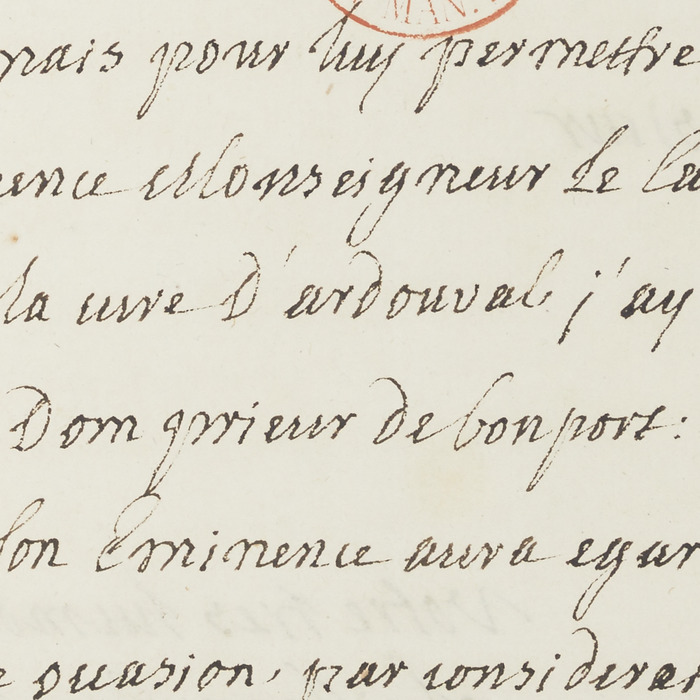 MAN.
mais pour luy permettre
ence Monseigneur Le Ca
la cure D'ardouval j'ay
Dom prieur de bonport:
son Eminence aura egar
e ocasion, par considera